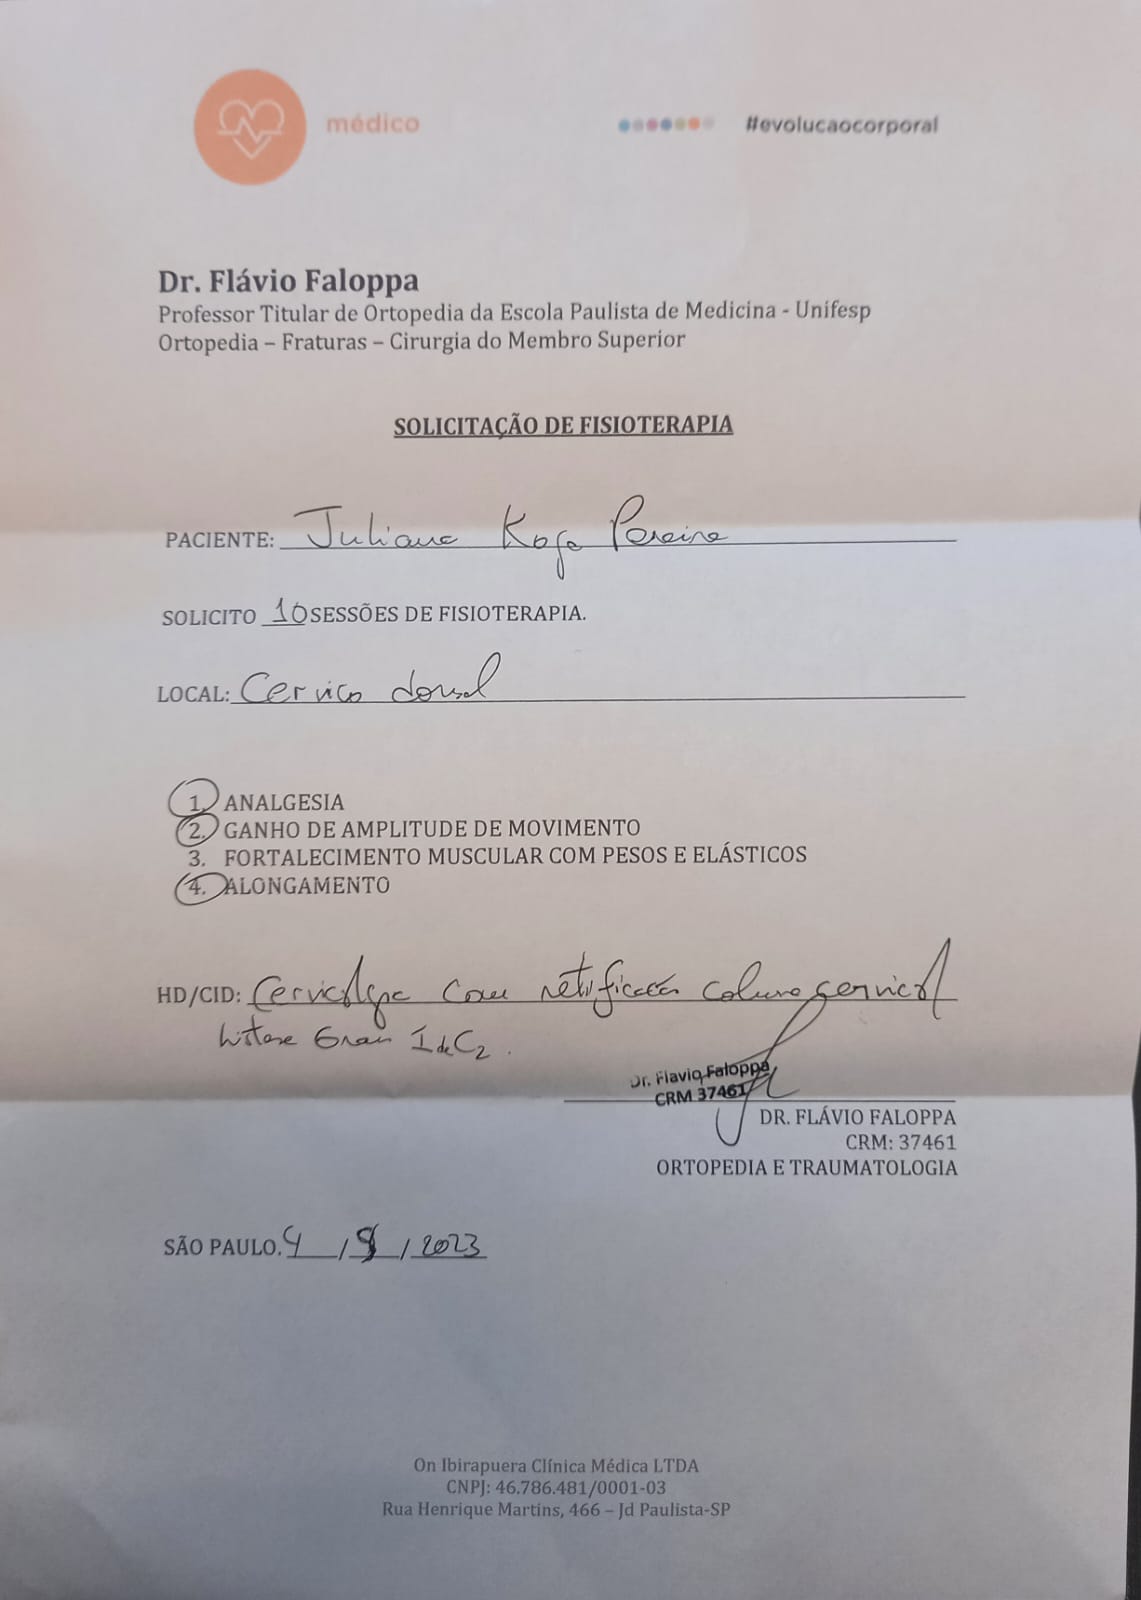 médico
#evolucaocorporal
Dr. Flávio Faloppa
Professor Titular de Ortopedia da Escola Paulista de Medicina - Unifesp
Ortopedia – Fraturas – Cirurgia do Membro Superior
SOLICITAÇÃO DE FISIOTERAPIA
PACIENTE: Juliana Koga Pereira
SOLICITO 10 SESSÕES DE FISIOTERAPIA.
LOCAL: Cervico dorsal
1. ANALGESIA
2. GANHO DE AMPLITUDE DE MOVIMENTO
3. FORTALECIMENTO MUSCULAR COM PESOS E ELÁSTICOS
4. ALONGAMENTO
HD/CID: Cervicalgia com retificação coluna cervical
listese Grau I de C2.
Dr. Flavio Faloppa
CRM 37461
DR. FLÁVIO FALOPPA
CRM: 37461
ORTOPEDIA E TRAUMATOLOGIA
SÃO PAULO. / / 2023
On Ibirapuera Clínica Médica LTDA
CNPJ: 46.786.481/0001-03
Rua Henrique Martins, 466 – Jd Paulista-SP